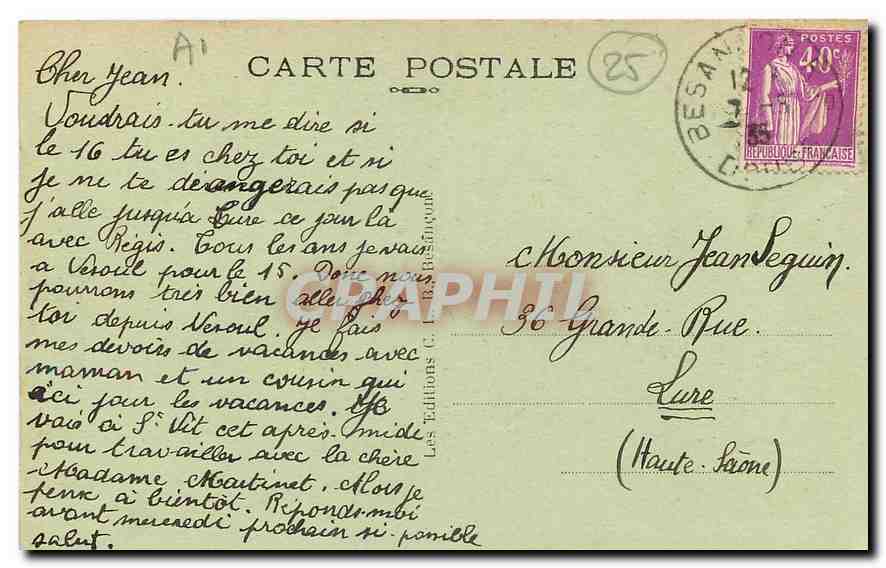 A1
25
CARTE POSTALE
POSTES
40c
REPUBLIQUE FRANCAISE
BESAN
35
Cher Jean.
Voudrais-tu me dire si
le 16 tu es chez toi et si
je ne te dérangerais pas que
j'alle jusqu'à Lure ce jour là
avec Régis. Tous les ans je vais
a Vesoul pour le 15. Donc nous
pourrons très bien aller chez
toi depuis Vesoul. Je fais
mes devoirs de vacances avec
maman et un cousin qui
ici pour les vacances. Je
vais à St Vit cet après-midi
pour travailler avec la chère
Madame Martinet. Alors je
pense à bientôt. Réponds-moi
avant mercredi prochain si possible
salut.
Les Editions C. L. B. Besançon
CPAPHIL
Monsieur Jean Seguin.
36 Grande-Rue.
Lure
(Haute-Saône)